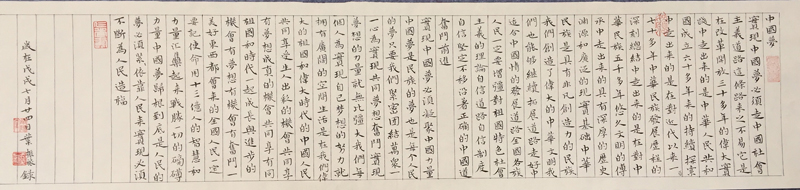 中國夢
實現中國夢必須走中國社會
主義道路這條路來之不易它是
在改革開放三十多年的偉大實
踐中走出來的是在中華人民共和
國成立六十多年來的持續探索
中走出來的是在對近代以來一
七十多年中華民族發展歷程的
深刻總結中走出來的是在對中
華民族五千多年悠久文明的傳
承中走出來的具有深厚的歷史
淵源和廣泛的現實基礎中華
民族是具有非凡創造力的民族
我們創造了偉大的中華文明我
們也能夠繼續拓展道路走好中
合中國情的發展道路全國各族
人民一定要增強對祖國特色社會
主義的理論自信道路自信制度
自信堅定不移沿着正確的中國道
奮鬥前進
實現中國夢必須凝聚中國力量
中國夢是民族的夢也是每个人民
的夢只要我們緊密團結萬衆
一心為實現共同夢想奮鬥實現
夢想的力量就無比強大我們每
個人為實現自己夢想的努力就
擁有廣闊的空間生活在我們偉
大的祖國和偉大時代的中國人民
共同享受人生出彩的機會共同享
有夢想成真的機會共同享有同
祖國和時代一起成長與進步的
機會有夢想有機會有奮鬥一
美好東西都會來的全國人民一定
要記使命用十三億人的智慧和
力量匯聚起來戰勝一切的磅礴
力量中國夢歸根到底是人民的
夢必須緊緊依靠人民來實現必須
不斷為人民造福
歲在戊戌七月十四日葉 錄